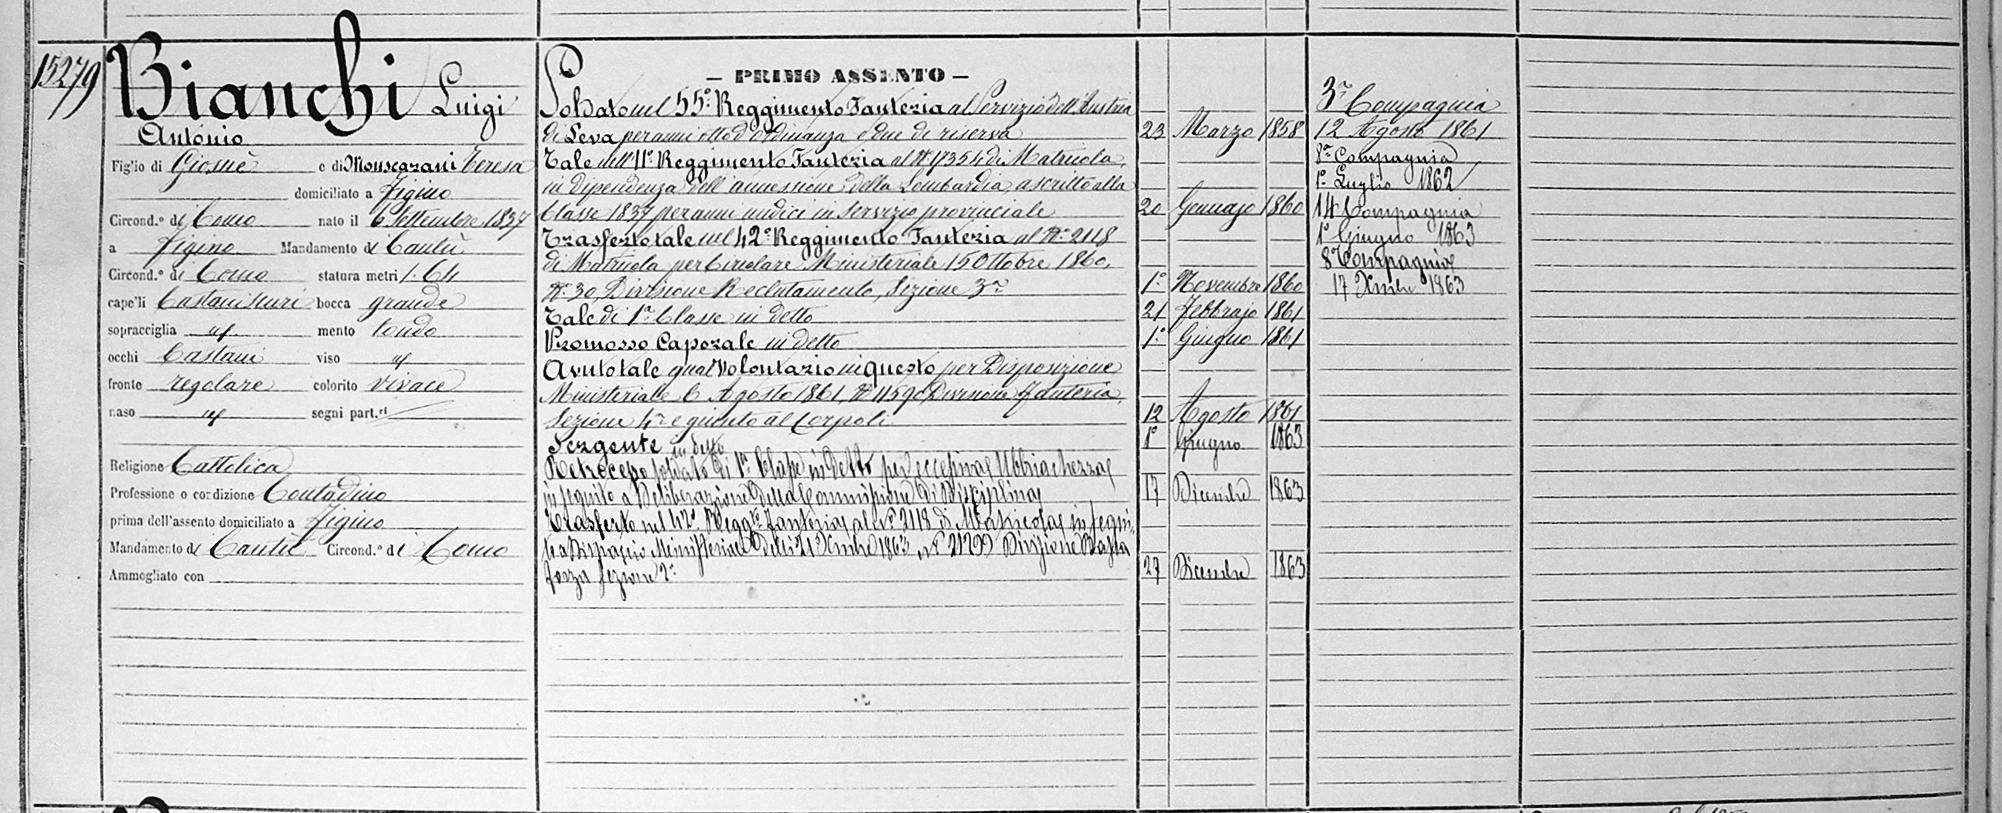 15279
Bianchi Luigi
António
Figlio di Giosuè e di Monegazani Teresa
domiciliato a Figino
Circond.o di Como nato il 6 Settembre 1837
a Figino Mandamento di Cantù
Circond.o di Como statura metri 1.64
capelli Castani scuri bocca grande
sopracciglia id mento tondo
occhi Castani viso id
fronte regolare colorito vivace
naso id segni part.ri
Religione Cattolica
Professione o condizione Contadino
prima dell'assento domiciliato a Figino
Mandamento di Cantù Circond.o di Como
Ammogliato con
— PRIMO ASSENTO —
Soldato nel 55.o Reggimento Fanteria al Servizio dell'Austria
di Leva per anni otto d'ordinanza e due di riserva 23 Marzo 1858
Tale nell'11.o Reggimento Fanteria al N.o 17354 di Matricola
in dipendenza dell'annessione della Lombardia ascritto alla
Classe 1837 per anni undici in servizio provinciale 20 Gennajo 1860
Trasferto tale nel 42.o Reggimento Fanteria al N.o 2118
di Matricola per Circolare Ministeriale 15 Ottobre 1860,
N.o 30, Divisione Reclutamento, Sezione 3.a 1.o Novembre 1860
Tale di 1.a Classe in detto 21 Febbrajo 1861
Promosso Caporale in detto 1.o Giugno 1861
Avuto tale qual Volontario in questo per Disposizione
Ministeriale 6 Agosto 1861, N.o Divisione Fanteria,
Sezione 4.a e giunto al Corpo li 12 Agosto 1861
Sergente in detto 1o Giugno 1863
Retrocesso soldato di 1.a Classe in detto per eccessiva Ubbriachezza
in seguito a Deliberazione della Commissione di Disciplina 17 Dicembre 1863
Trasferto nel 42o Reggto Fanteria al No 2118 di Matricola in segui-
to a Dispaccio Ministeriale delli 21 Xmbre 1863 No 21299 Divisione Bassa
forza sezione 2a 27 Dicembre 1863
3a Compagnia
12 Agosto 1861
8a Compagnia
1o Luglio 1862
14 Compagnia
1o Giugno 1863
8a Compagnia
17 Xmbre 1863